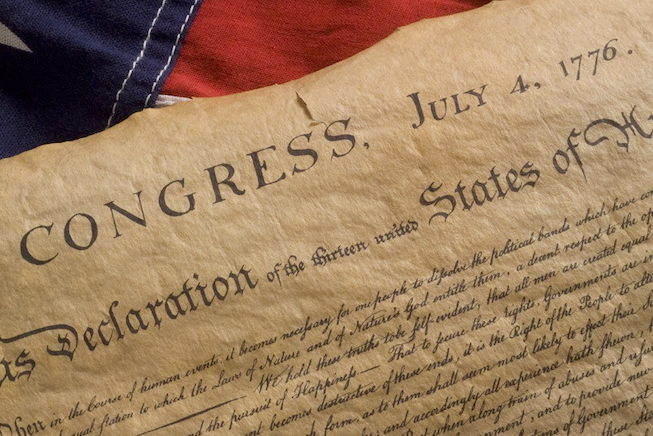 CONGRESS, JULY 4, 1776.
Declaration of the thirteen united States of
When in the Course of human events it becomes necessary for one people to dissolve the political bands which have
equal station to which the Laws of Nature and of Nature's God entitle them, a decent respect to the
We hold these truths to be self evident, that all men are created equal
and the pursuit of Happiness — That to secure these rights Governments are
becomes destructive of these ends, it is the Right of the People to alter
form, as to them shall seem most likely to effect their
and accordingly all experience hath shewn,
But when along train of abuses and
Government, and to provide new
of Government